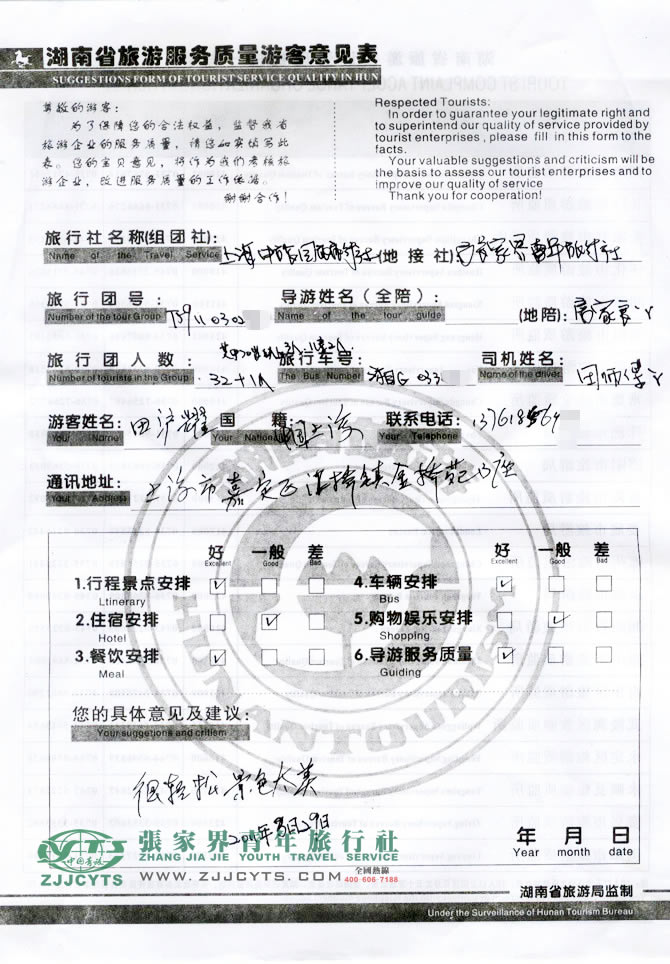 湖南省旅游服务质量游客意见表
SUGGESTIONS FORM OF TOURIST SERVICE QUALITY IN HUN
尊敬的游客:
为了保障您的合法权益,监督我省
旅游企业的服务质量,请您如实填写此
表。您的宝贝意见,将作为我们考核旅
游企业,改进服务质量的工作依据。
谢谢合作!
Respected Tourists:
In order to guarantee your legitimate right and
to superintend our quality of service provided by
tourist enterprises , please fill in this form to the
facts.
Your valuable suggestions and criticism will be
the basis to assess our tourist enterprises and to
improve our quality of service
Thank you for cooperation!
旅行社名称(组团社): 上海中旅国际旅行社 (地接社) 张家界青年旅行社
Name of the Travel Service
旅行团号: 导游姓名(全陪): (地陪):
Number of the tour Group Name of the tour guide
旅行团人数: 32+1人 旅行车号: 湘G 033 司机姓名: 田师傅
Number of Tourists in the Group The Bus Number Name of the driver
游客姓名: 田沪耀 国籍: 中国上海 联系电话:
Your Name Your National Your Telephone
通讯地址: 上海市嘉定区
Your Address
好 一般 差 好 一般 差
Excellent Good Bad Excellent Good Bad
1.行程景点安排 4.车辆安排
Ltinerary Bus
2.住宿安排 5.购物娱乐安排
Hotel Shopping
3.餐饮安排 6.导游服务质量
Meal Guiding
HUNAN TOURISM
您的具体意见及建议:
Your suggestions and critism
很轻松 景色太美
2011年8月29日
年 月 日
Year month date
中国青旅
張家界青年旅行社
ZHANG JIA JIE YOUTH TRAVEL SERVICE
ZJJCYTS
WWW.ZJJCYTS.COM 全國熱線
400-606-7188
湖南省旅游局监制
Under the Surveillance of Hunan Tourism Bureau